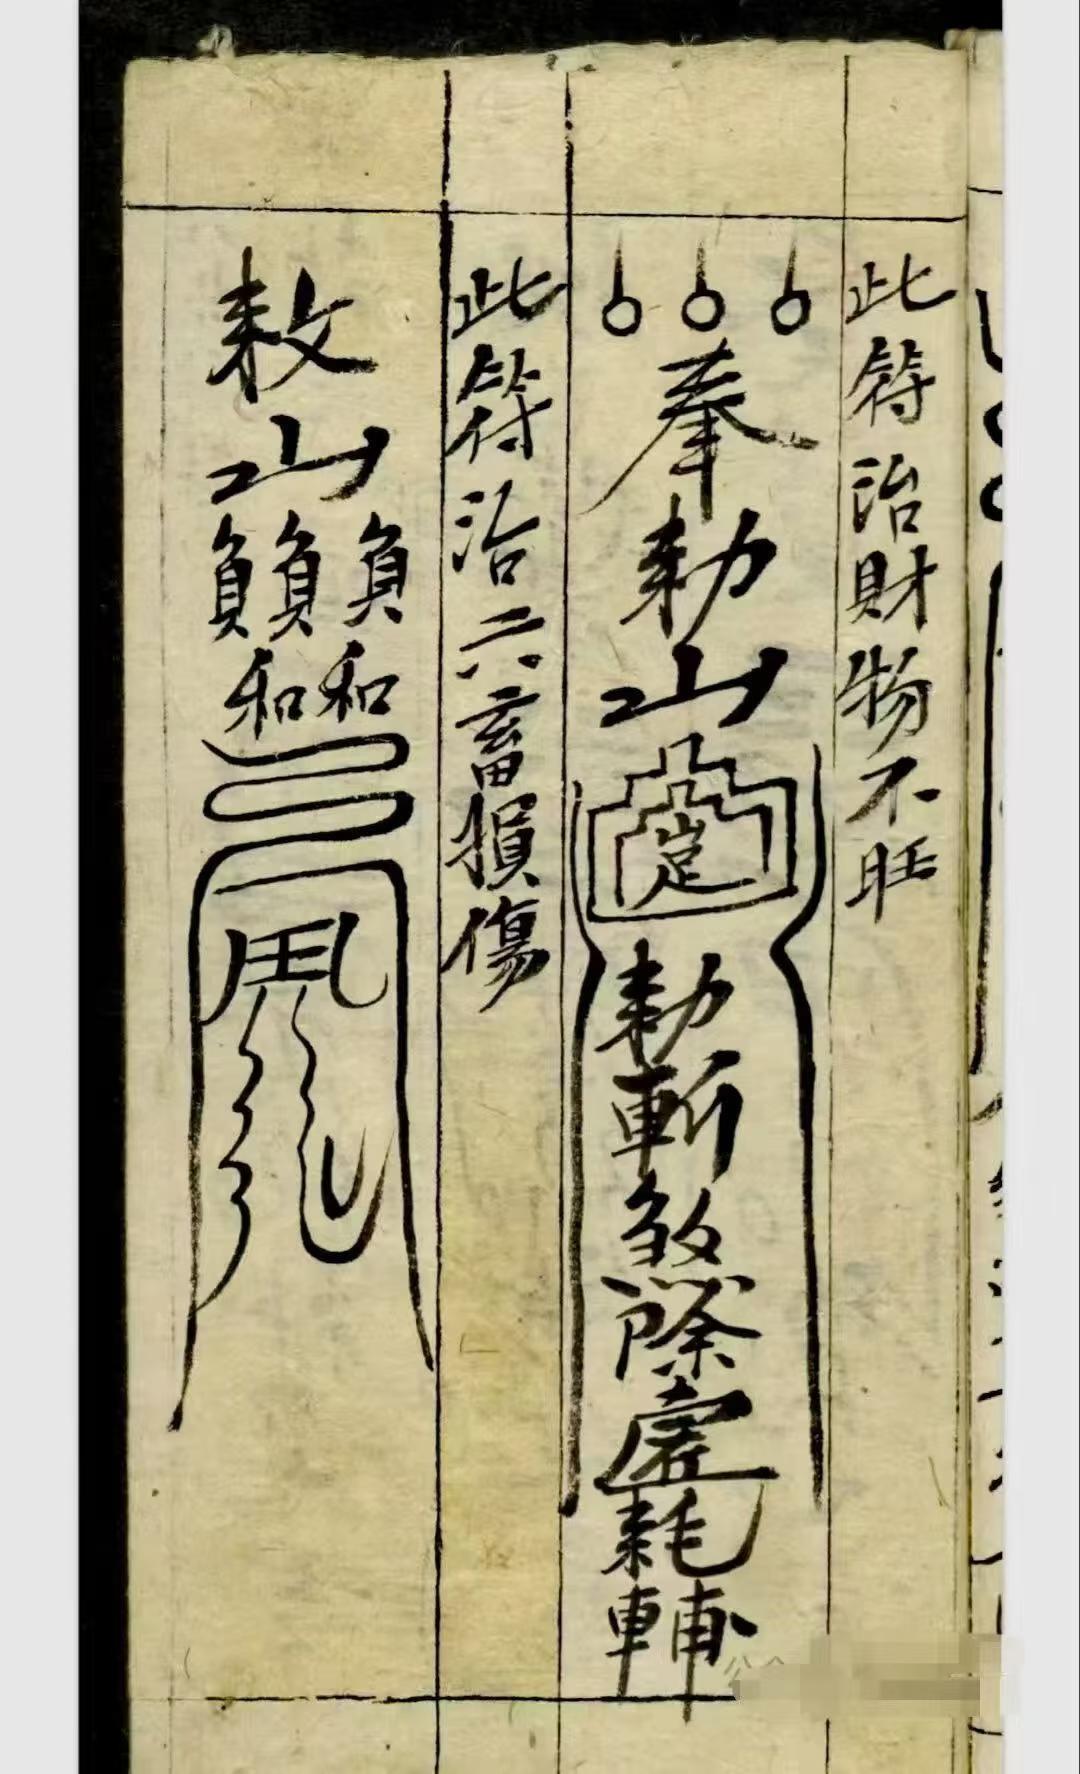 此符治財物不旺
奉勅山
勅斬煞除虛耗
此符治六畜損傷
敕山
負負負
和和